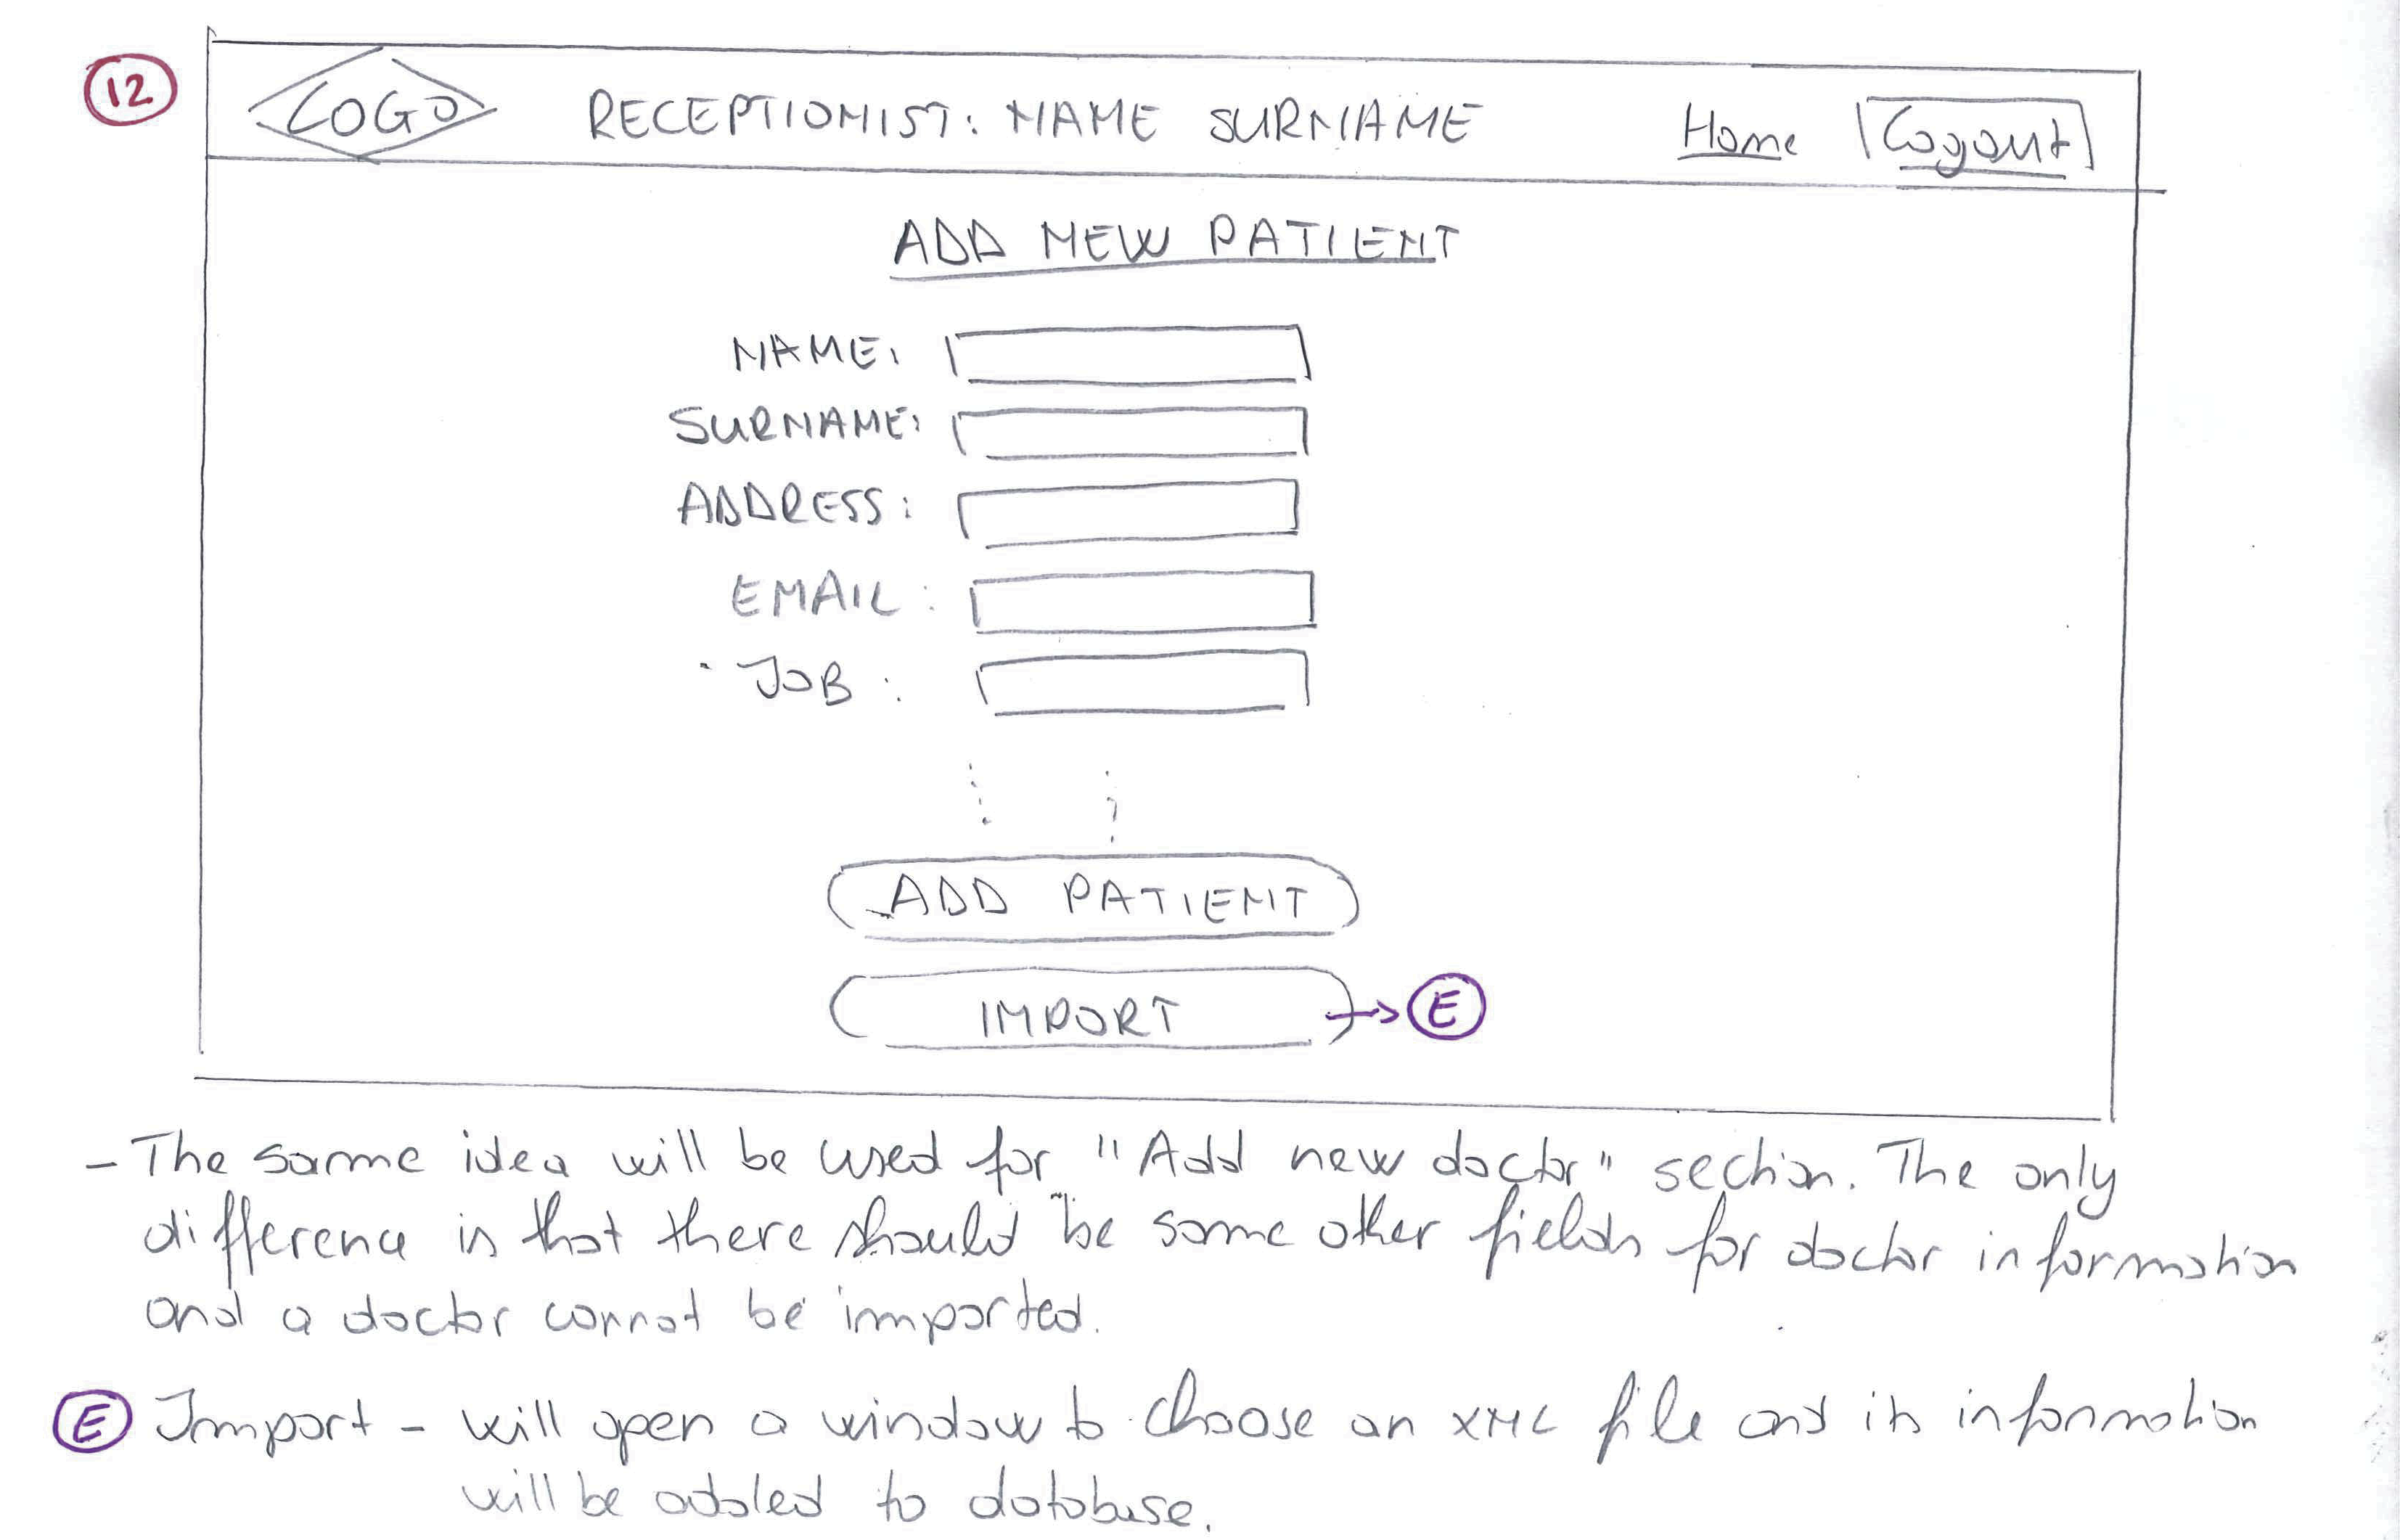 12
LOGO RECEPTIONIST: NAME SURNAME Home Logout
ADD NEW PATIENT
NAME:
SURNAME:
ADDRESS:
EMAIL:
JOB:
ADD PATIENT
IMPORT → E
- The same idea will be used for "Add new doctor" section. The only
difference is that there should be some other fields for doctor information
and a doctor cannot be imported.
E Import - will open a window to choose an XML file and its information
will be added to database.